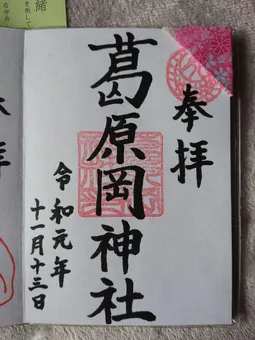 奉拝
葛原岡神社
令和元年
十一月十三日
緒
拝